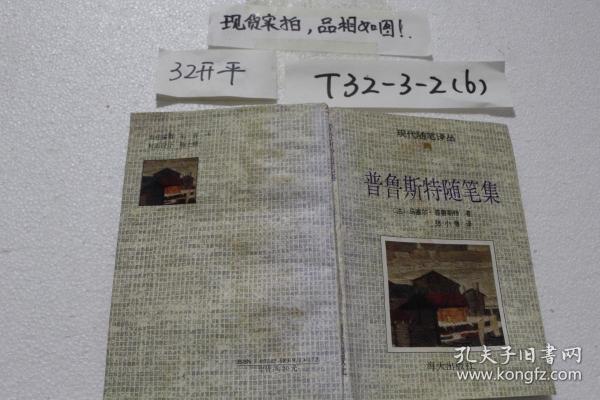 现货实拍,品相如图!.
32开平
T32-3-2(6)
现代随笔译丛
普鲁斯特随笔集
(法)马塞尔·普鲁斯特 著
张小鲁 译
海天出版社
孔夫子旧书网
www.kongfz.com